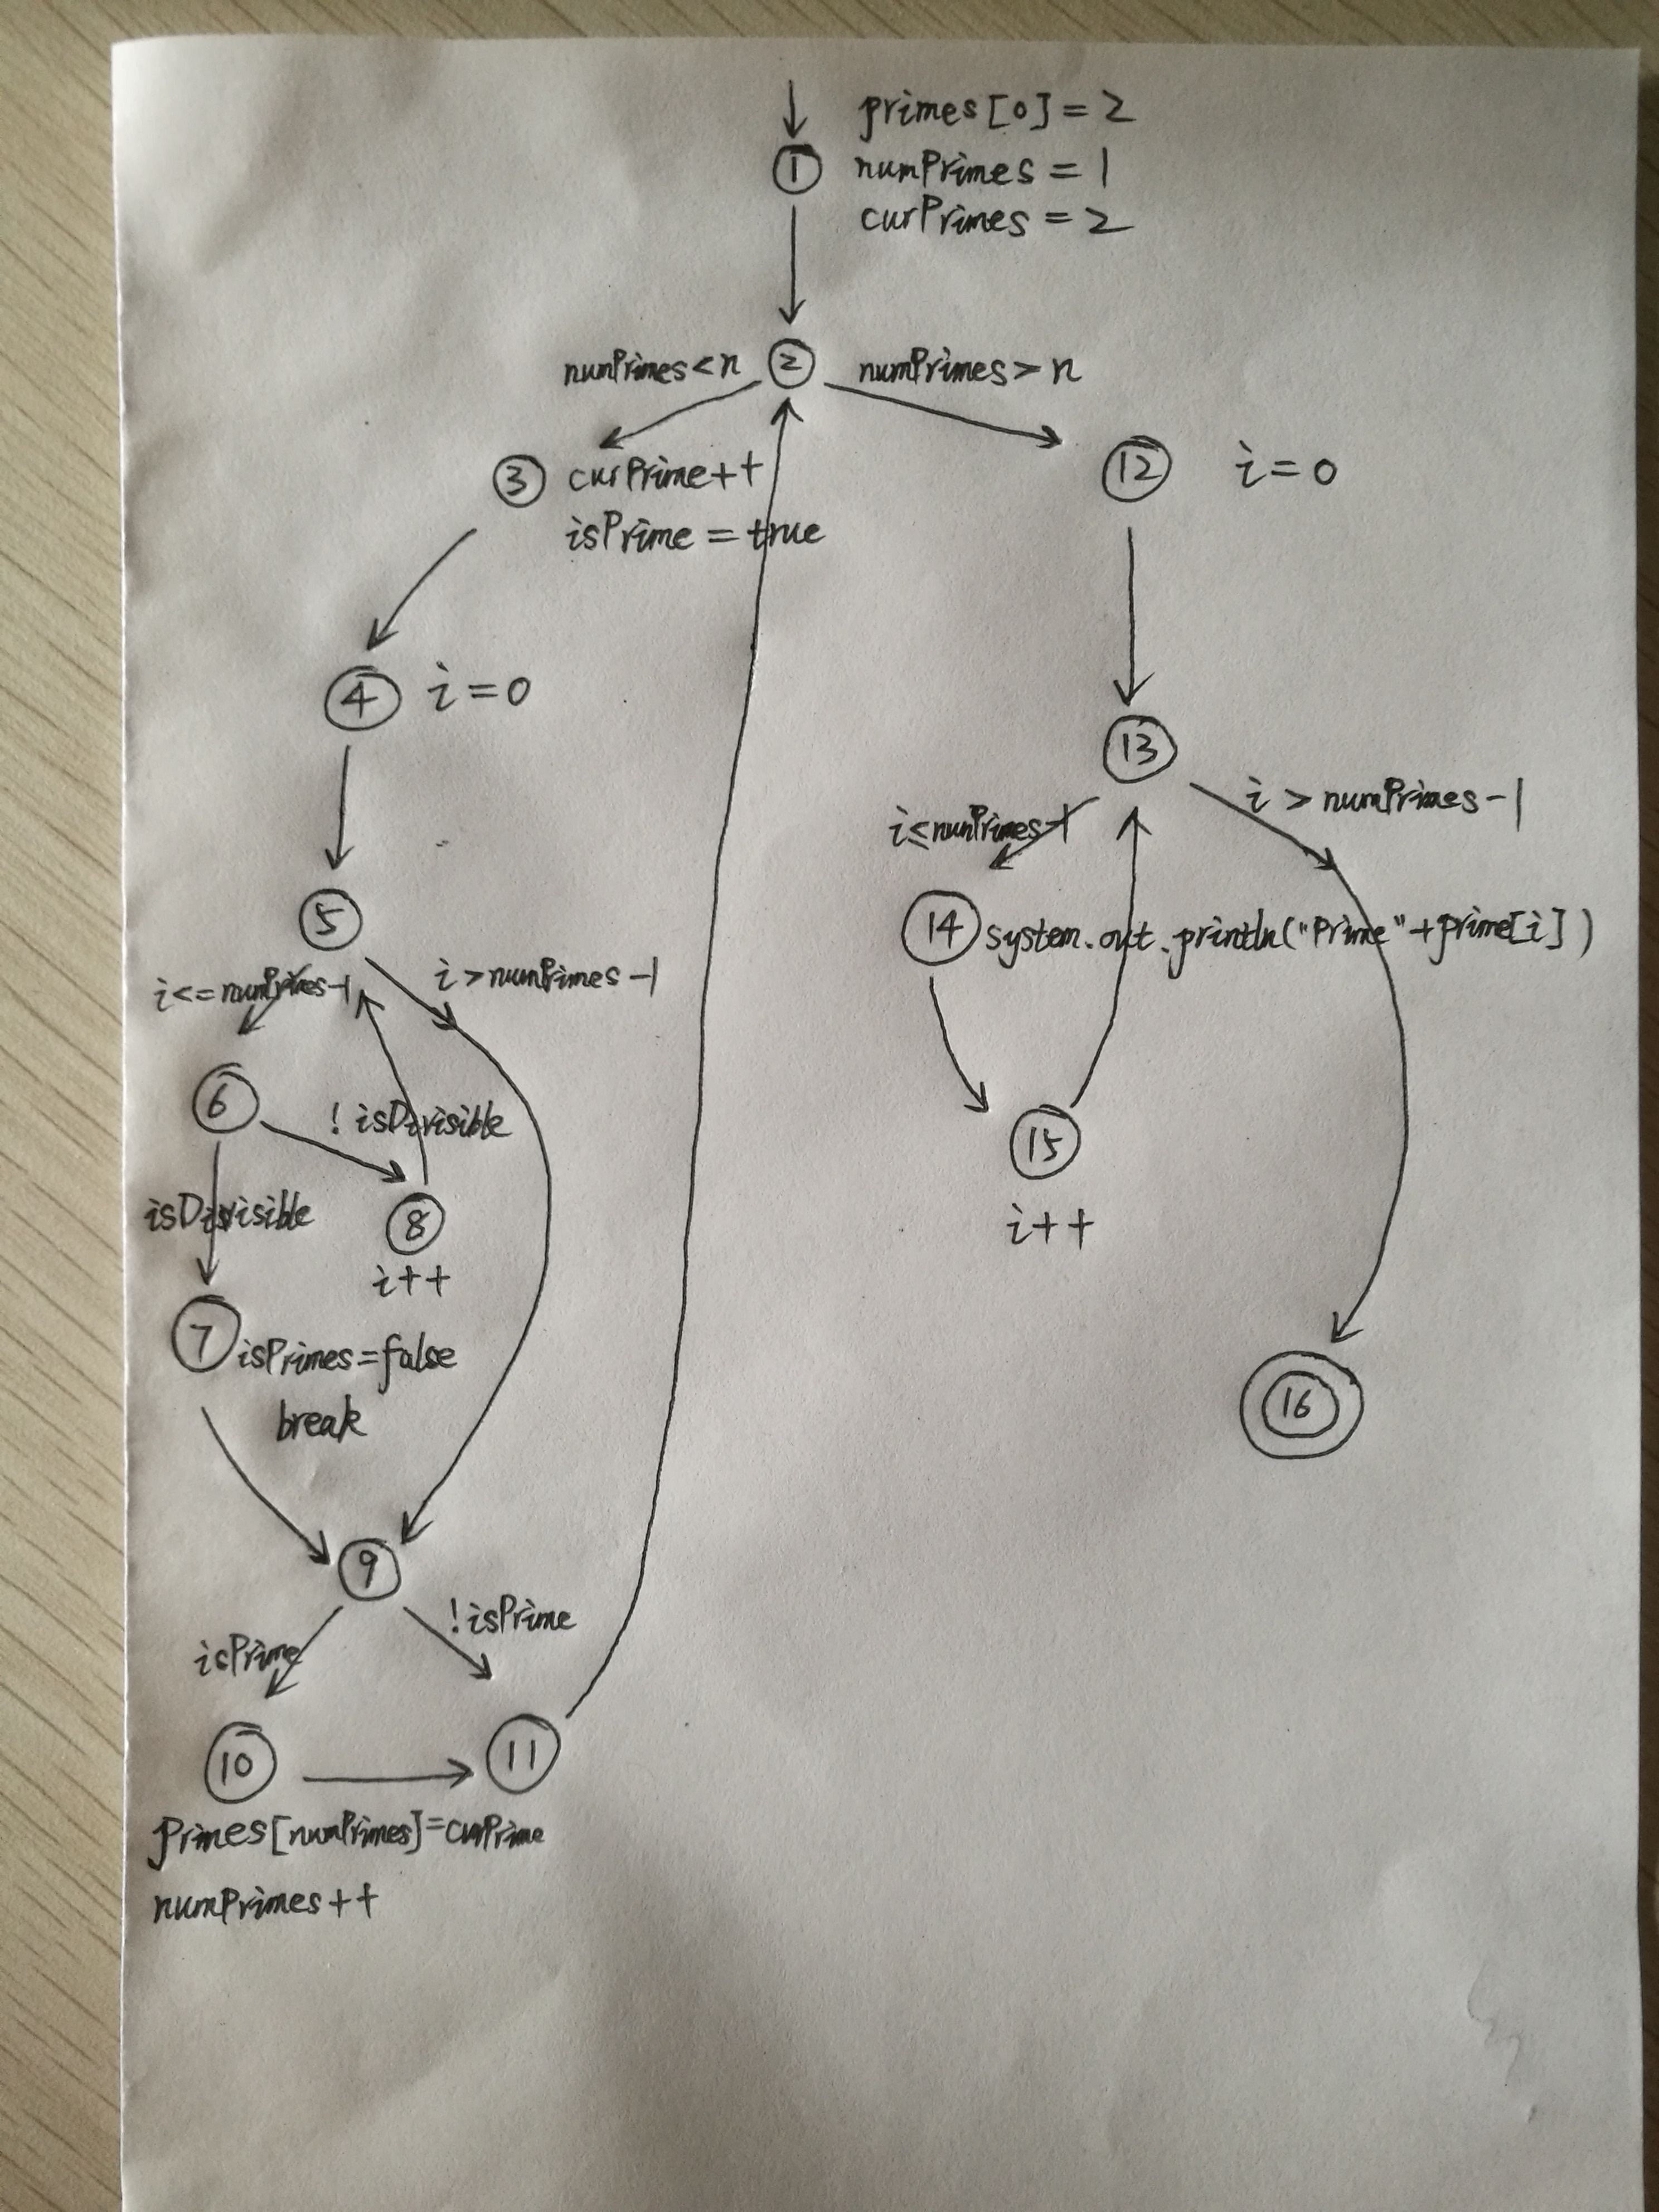 primes[0]=2
1 numPrimes = 1
curPrimes = 2
numPrimes<n 2 numPrimes>n
3 curPrime++
isPrime = true
12 i=0
4 i=0
13
i>numPrimes-1
i≤numPrimes-1
5
14 system.out.println("Prime"+prime[i])
i<=numPrimes-1 i>numPrimes-1
6 !isDivisible
15
isDivisible 8
i++
i++
7 isPrimes=false
break
16
9
isPrime !isPrime
10 11
primes[numPrimes]=curPrime
numPrimes++